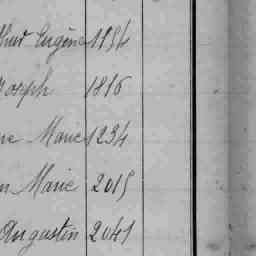 Eugène 1954
Joseph 1816
Marie 1234
Marie 2015
Augustin 2041